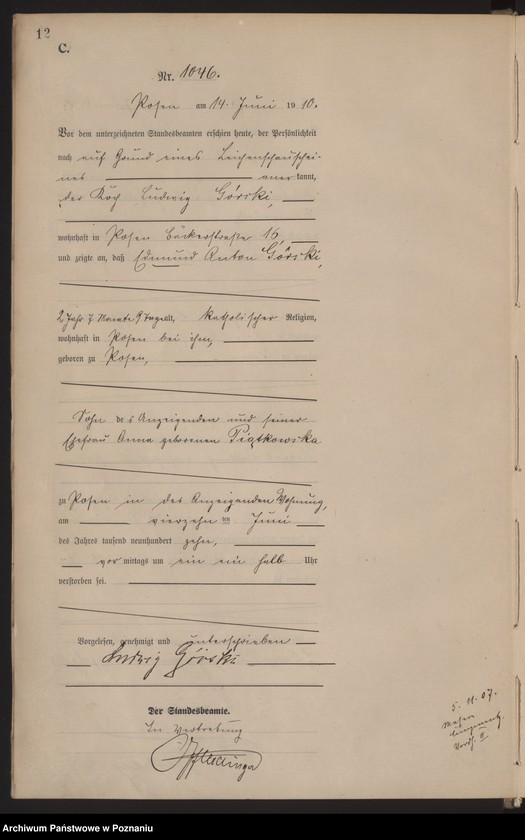 12
C.
Nr. 1046.
Posen am 14. Juni 1910.
Vor dem unterzeichneten Standesbeamten erschien heute, der Persönlichkeit
nach auf Grund eines Leichenschauschei-
nes anerkannt,
der Koch Ludwig Górski,
wohnhaft in Posen Bäckerstraße 16,
und zeigte an, daß Edmund Anton Górski,
2 Jahr 7 Monate 9 Tage alt, katholischer Religion,
wohnhaft in Posen bei ihm,
geboren zu Posen,
Sohn des Anzeigenden und seiner
Ehefrau Anna geborenen Piątkowska
zu Posen in des Anzeigenden Wohnung,
am vierzehnten Juni
des Jahres tausend neunhundert zehn,
vormittags um ein ein halb Uhr
verstorben sei.
Vorgelesen, genehmigt und unterschrieben
Ludwig Górski
Der Standesbeamte.
In Vertretung
5. 11. 07.
Archiwum Państwowe w Poznaniu